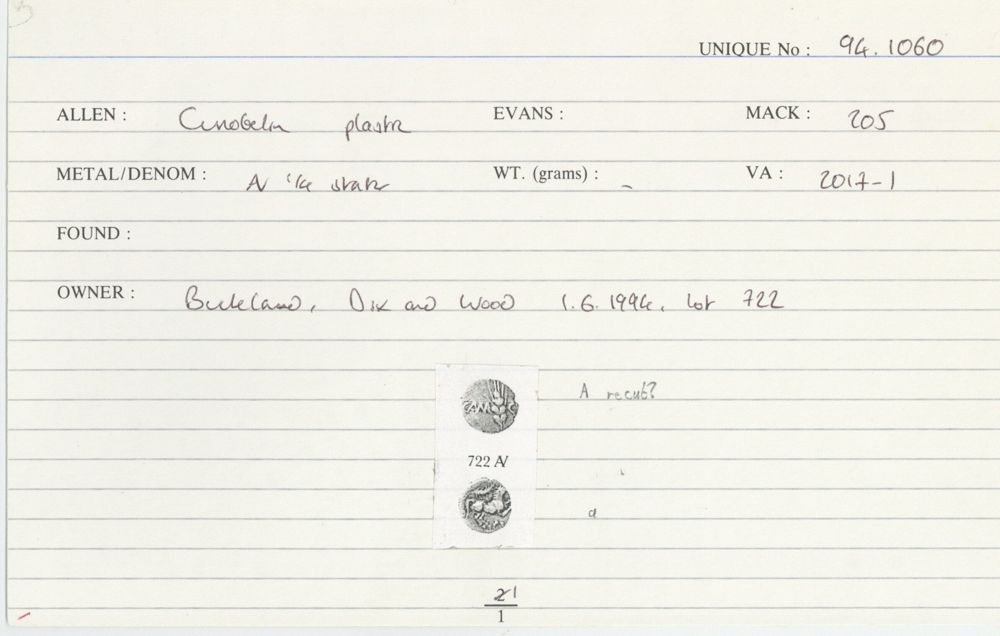 UNIQUE No : 94.1060
ALLEN : Cunobelin plastic EVANS : MACK : 205
METAL/DENOM : AV 1/4 stater WT. (grams) : - VA : 2017-1
FOUND :
OWNER : Buckland, Dix and Wood 1.6.1994, lot 722
CAM
A recut?
722 AV
a
21
1